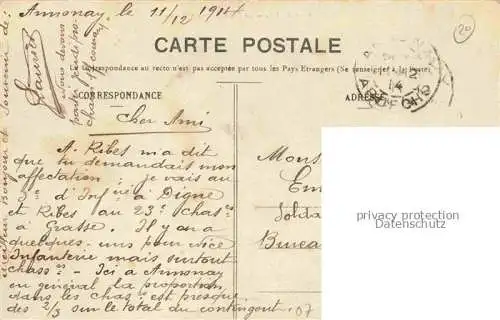 Annonay, le 11/12 1914
CARTE POSTALE
La Correspondance au recto n'est pas acceptée par tous les Pays Etrangers (Se renseigner à la Poste)
CORRESPONDANCE
ADRESSE
Cher Ami
A. Ribes m'a dit
que tu demandais mon
affectation : je vais au
3e d'Infrie à Digne
et Ribes au 23e chasrs
à Grasse. Il y en a
quelques-uns pour Nice
Infanterie mais surtout
chassrs - Ici à Annonay
en général la proportion
dans les chasrs est presque
des 2/3 sur le total du contingent.
Bonjour et Souvenir de
nous devons
partir jeudi pro-
chain 17 courant
Mons
Em
Solda
Bureau
07
20
privacy protection
Datenschutz